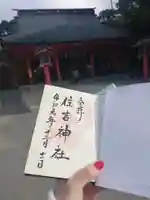 奉拝
住吉神社
令和元年十二月十二日